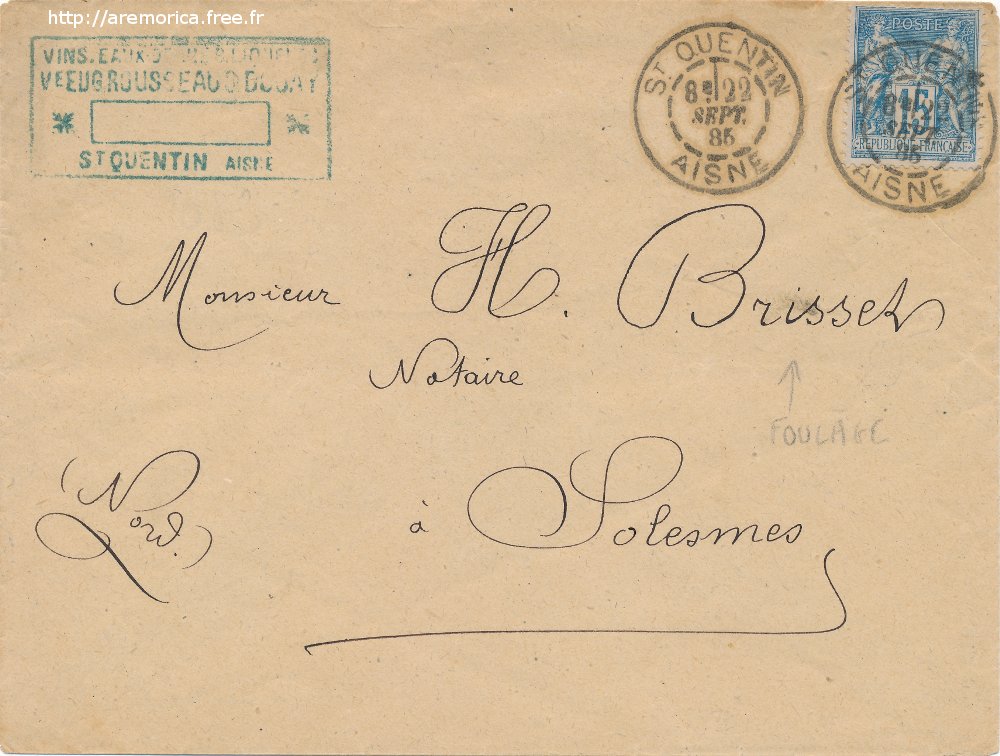 http://aremorica.free.fr
VINS. EAUX-DE-VIE & LIQUEURS
VEEUG ROUSSEAU & DOUAY
ST QUENTIN AISNE
ST QUENTIN
8E 22
SEPT.
85
AISNE
POSTE
15
REPUBLIQUE FRANCAISE
ST QUENTIN
8E 22
SEPT.
85
AISNE
Monsieur H. Brisset
Notaire
FOULAGE
(Nord.)
à Solesmes